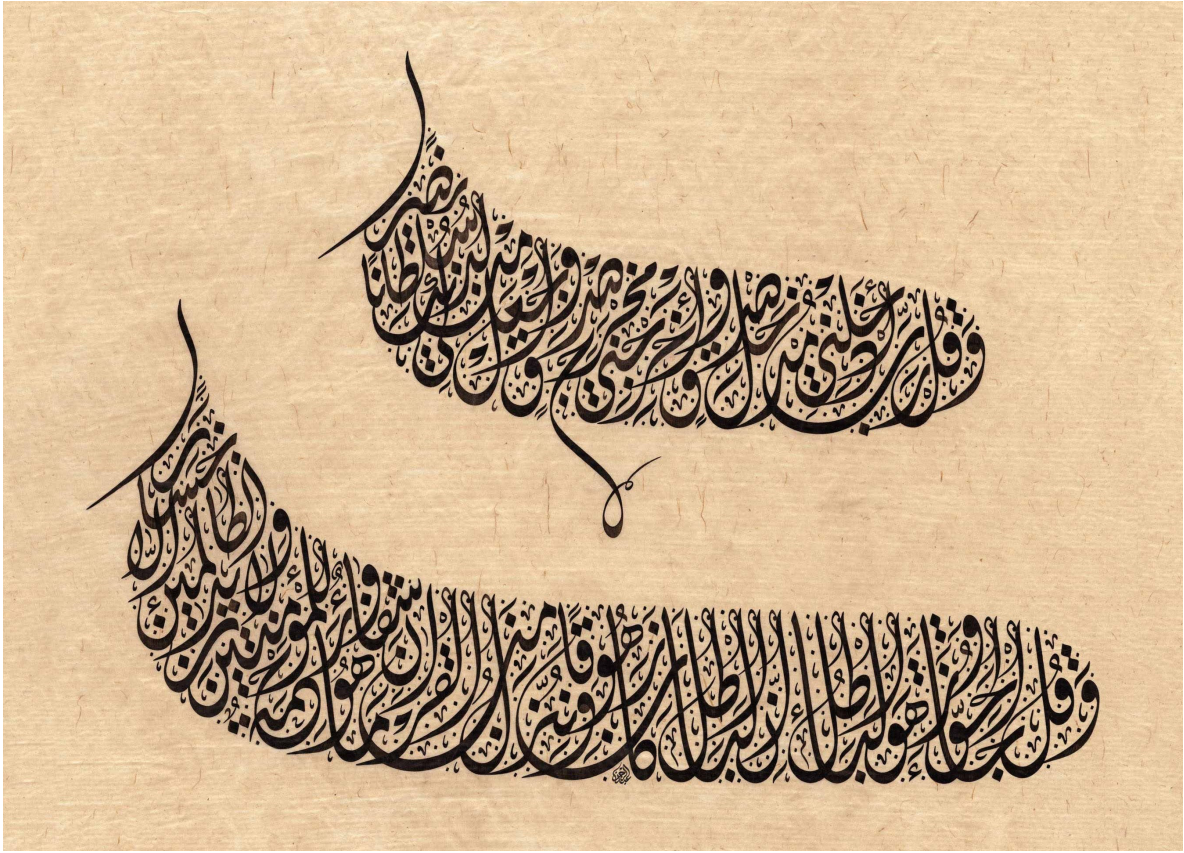 وَقُل رَّبِّ أَدْخِلْنِي مُدْخَلَ صِدْقٍ وَأَخْرِجْنِي مُخْرَجَ صِدْقٍ وَاجْعَل لِّي مِن لَّدُنكَ سُلْطَانًا نَّصِيرًا
وَقُلْ جَاءَ الْحَقُّ وَزَهَقَ الْبَاطِلُ إِنَّ الْبَاطِلَ كَانَ زَهُوقًا وَنُنَزِّلُ مِنَ الْقُرْآنِ مَا هُوَ شِفَاءٌ وَرَحْمَةٌ لِّلْمُؤْمِنِينَ وَلَا يَزِيدُ الظَّالِمِينَ إِلَّا خَسَارًا